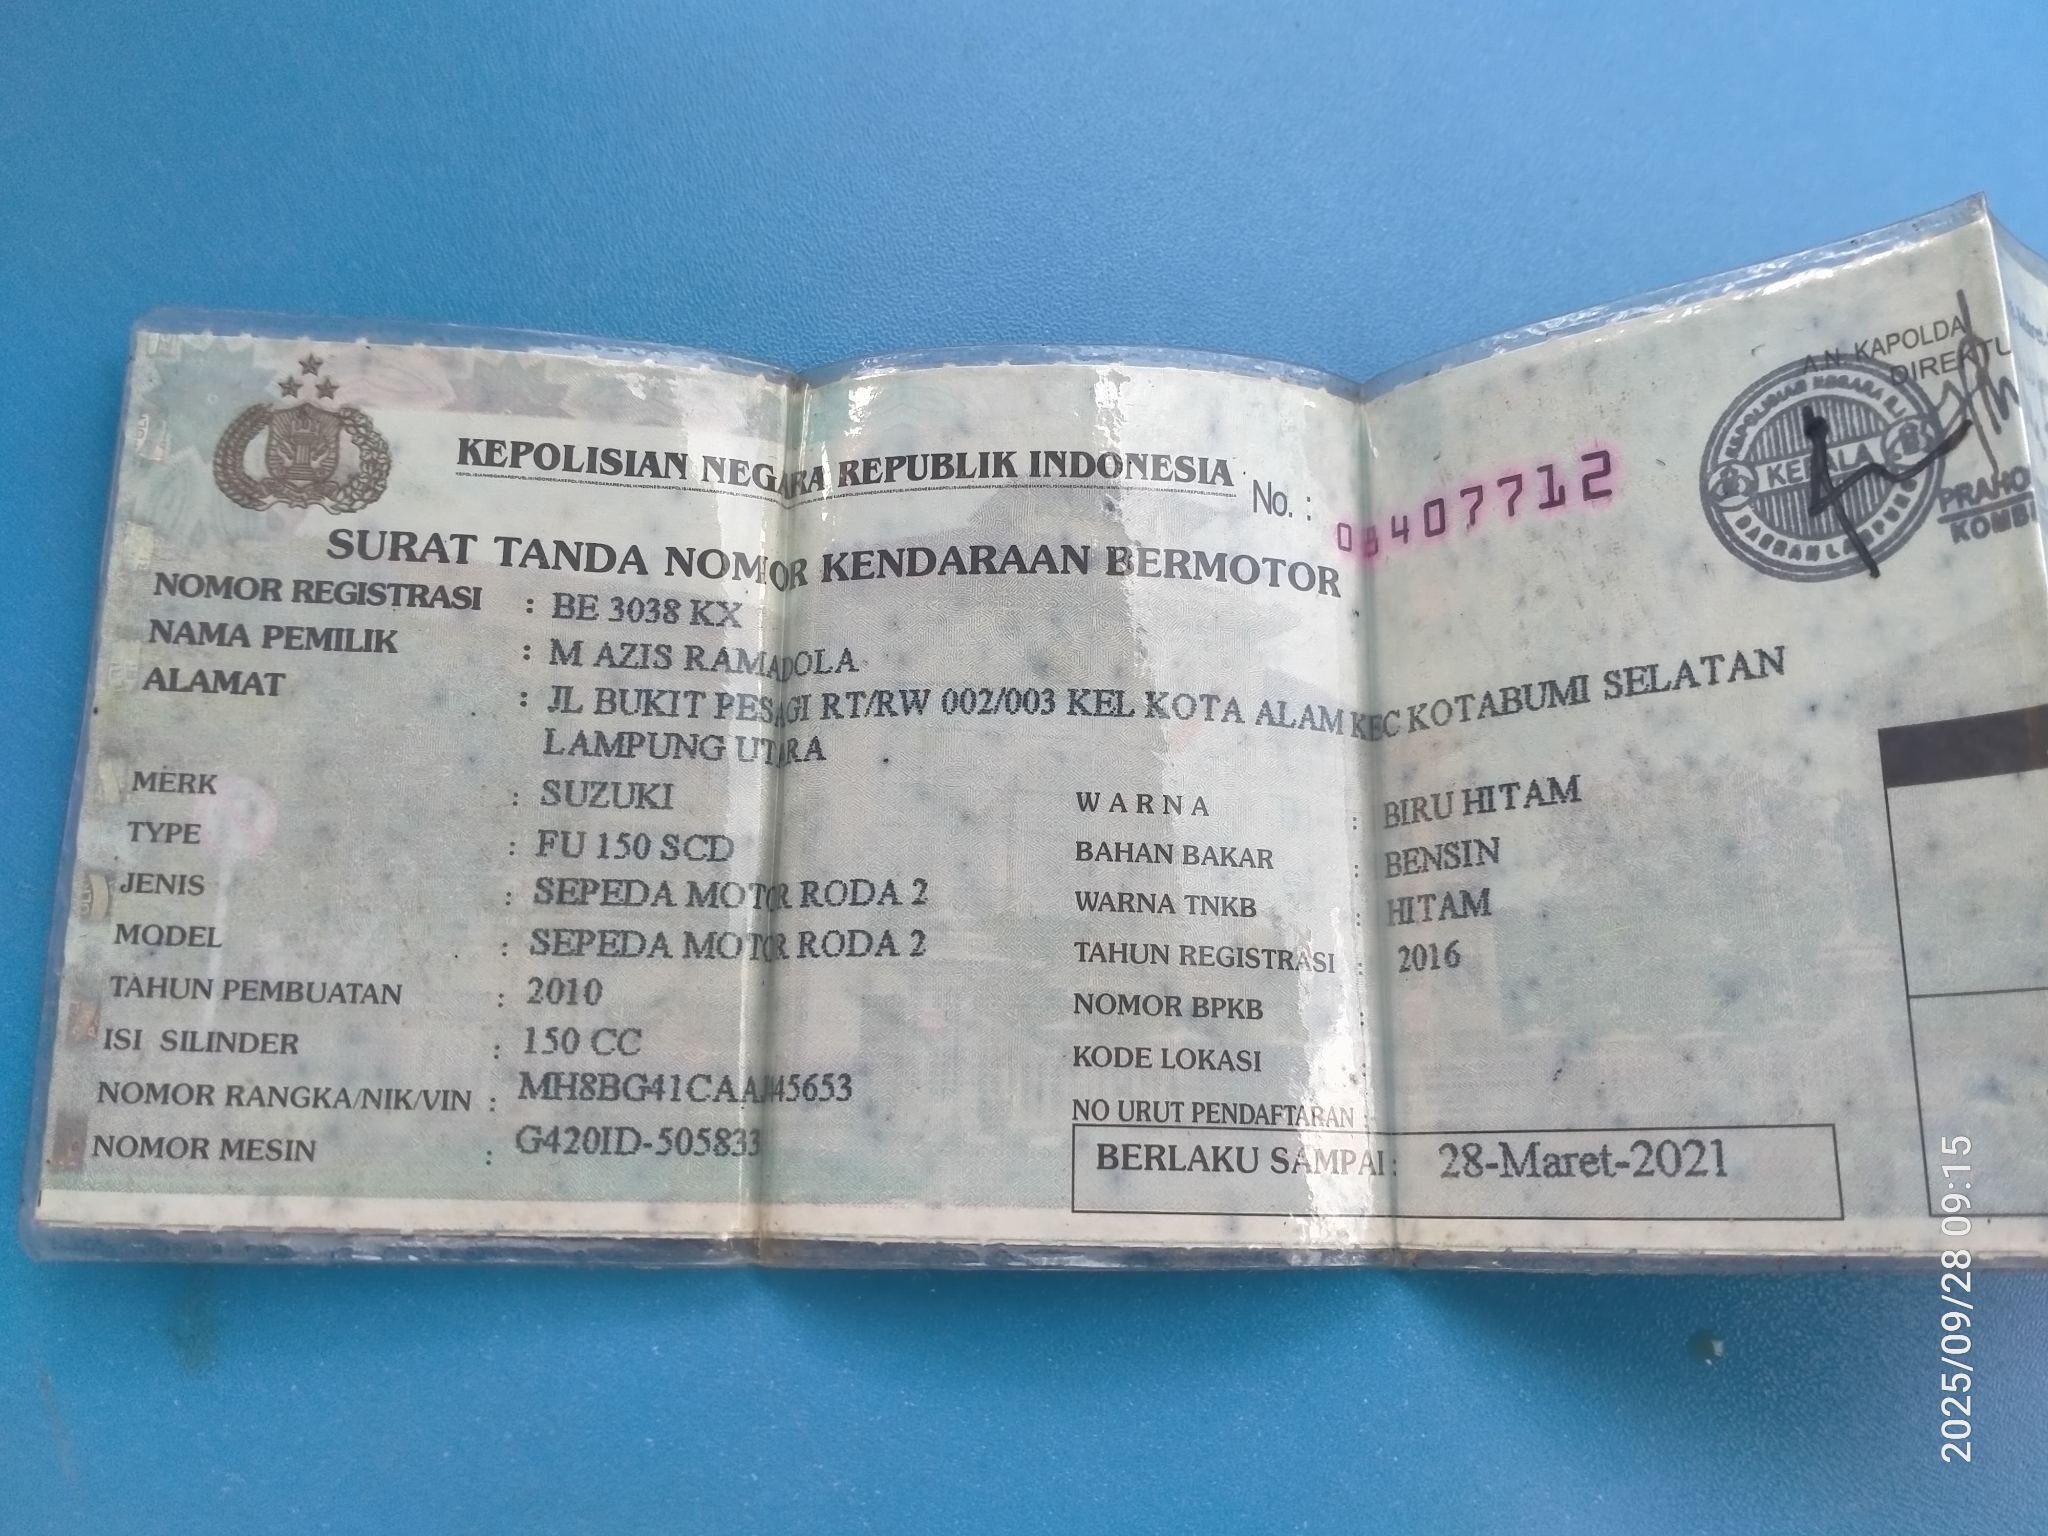 KEPOLISIAN NEGARA REPUBLIK INDONESIA
No. : 08407712
SURAT TANDA NOMOR KENDARAAN BERMOTOR
A.N. KAPOLDA
KEPOLISIAN NEGARA R.I.
KEPALA
DAERAH LAMPUNG
NOMOR REGISTRASI : BE 3038 KX
NAMA PEMILIK : M AZIS RAMADOLA
ALAMAT : JL BUKIT PESAGI RT/RW 002/003 KEL KOTA ALAM KEC KOTABUMI SELATAN
LAMPUNG UTARA
MERK : SUZUKI
TYPE : FU 150 SCD
JENIS : SEPEDA MOTOR RODA 2
MODEL : SEPEDA MOTOR RODA 2
TAHUN PEMBUATAN : 2010
ISI SILINDER : 150 CC
NOMOR RANGKA/NIK/VIN : MH8BG41CAAJ45653
NOMOR MESIN : G420ID-505833
WARNA : BIRU HITAM
BAHAN BAKAR : BENSIN
WARNA TNKB : HITAM
TAHUN REGISTRASI : 2016
NOMOR BPKB :
KODE LOKASI :
NO URUT PENDAFTARAN :
BERLAKU SAMPAI : 28-Maret-2021
2025/09/28 09:15